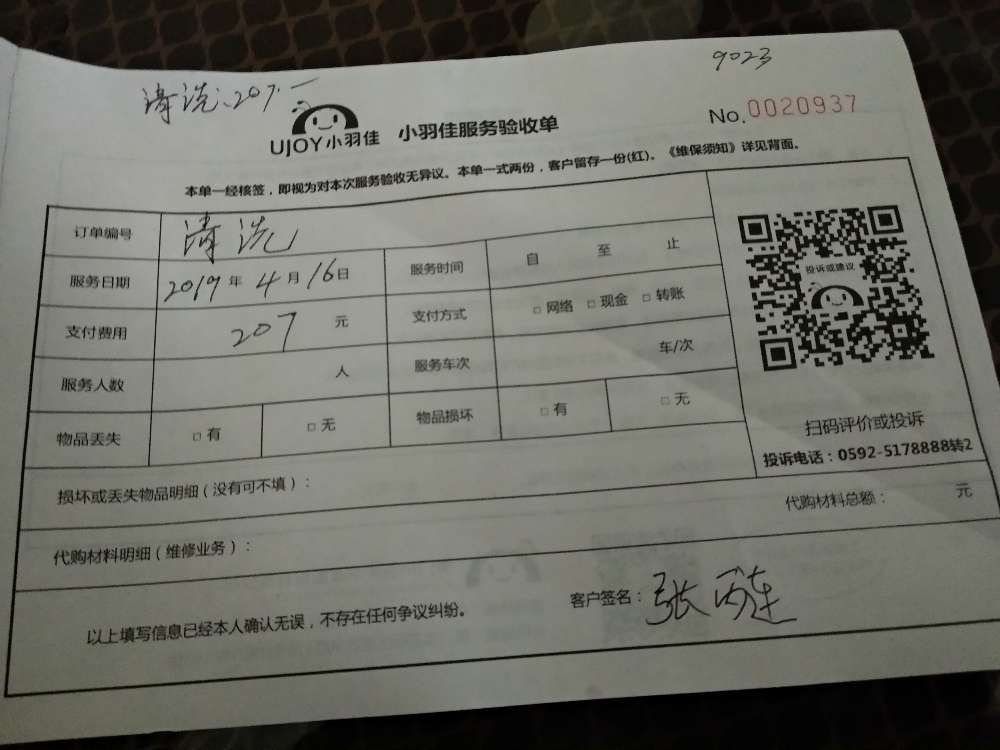 9023
清洗:207.一
UJOY小羽佳 小羽佳服务验收单 No.0020937
本单一经核签，即视为对本次服务验收无异议。本单一式两份，客户留存一份(红)。《维保须知》详见背面。
订单编号 清洗
服务日期 2019年4月16日 服务时间 自 至 止
投诉或建议
支付费用 207元 支付方式 □网络 □现金 □转账
服务人数 人 服务车次 车/次
物品丢失 □有 □无 物品损坏 □有 □无
扫码评价或投诉
投诉电话：0592-5178888转2
损坏或丢失物品明细（没有可不填）：
代购材料明细（维修业务）： 代购材料总额： 元
以上填写信息已经本人确认无误，不存在任何争议纠纷。 客户签名：张